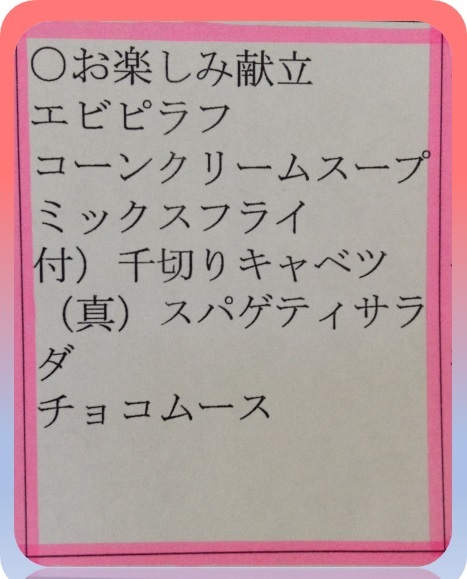 〇お楽しみ献立
エビピラフ
コーンクリームスープ
ミックスフライ
付）千切りキャベツ
（真）スパゲティサラ
ダ
チョコムース